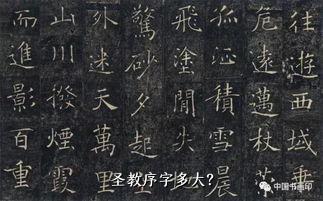 往遊西域乘
危遠邁杖
孤征積雪晨
飛塗閒失
驚砂夕起
外迷天萬里
山川撥煙霞
而進影百重
圣教序字多大？
中国书画印